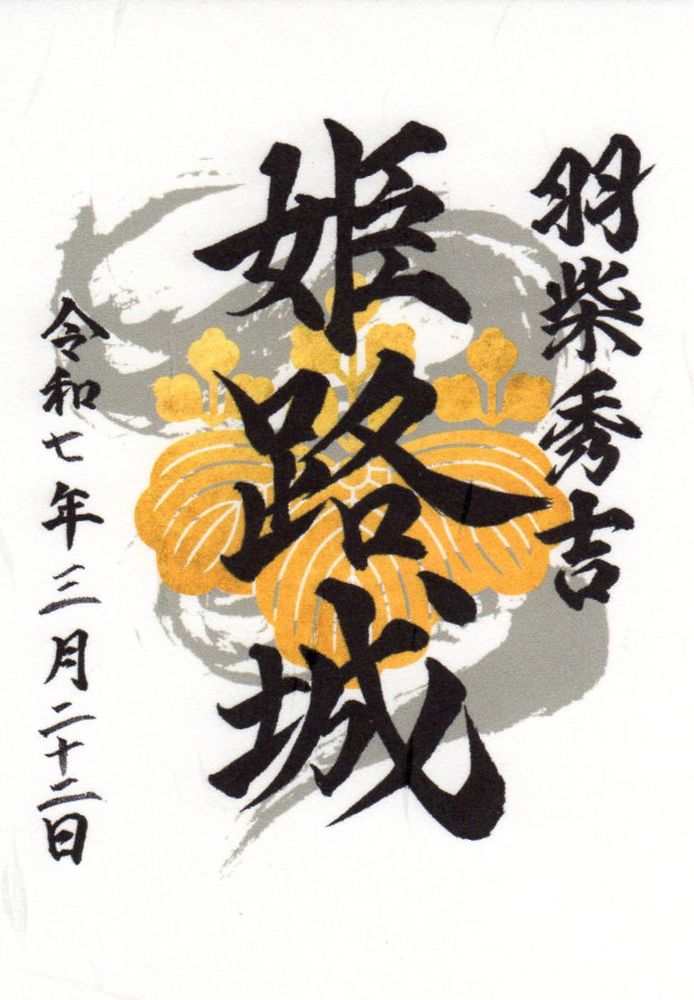 羽柴秀吉
姫路城
令和七年三月二十二日